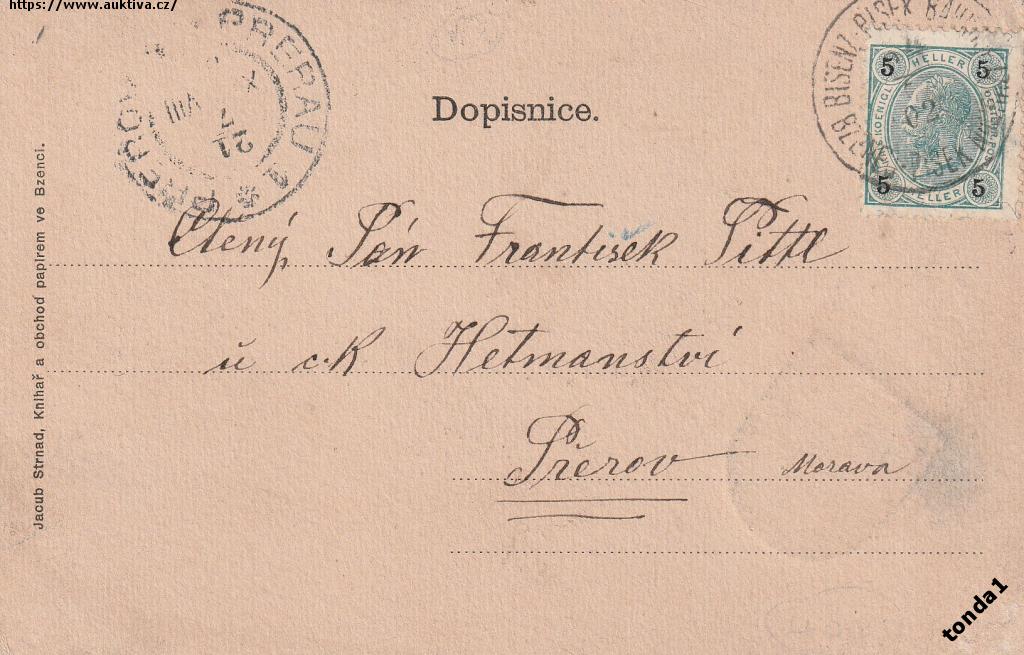 https://www.auktiva.cz/
PREROV PRERAU 1
21
VIII
BISENZ-PISEK BAHNHOF
02
5 HELLER 5
5 HELLER 5
Dopisnice.
Ctený Pán František Pittl
u c.k Hetmanství
Přerov Morava
Jacub Strnad, Knihař a obchod papírem ve Bzenci.
tonda1